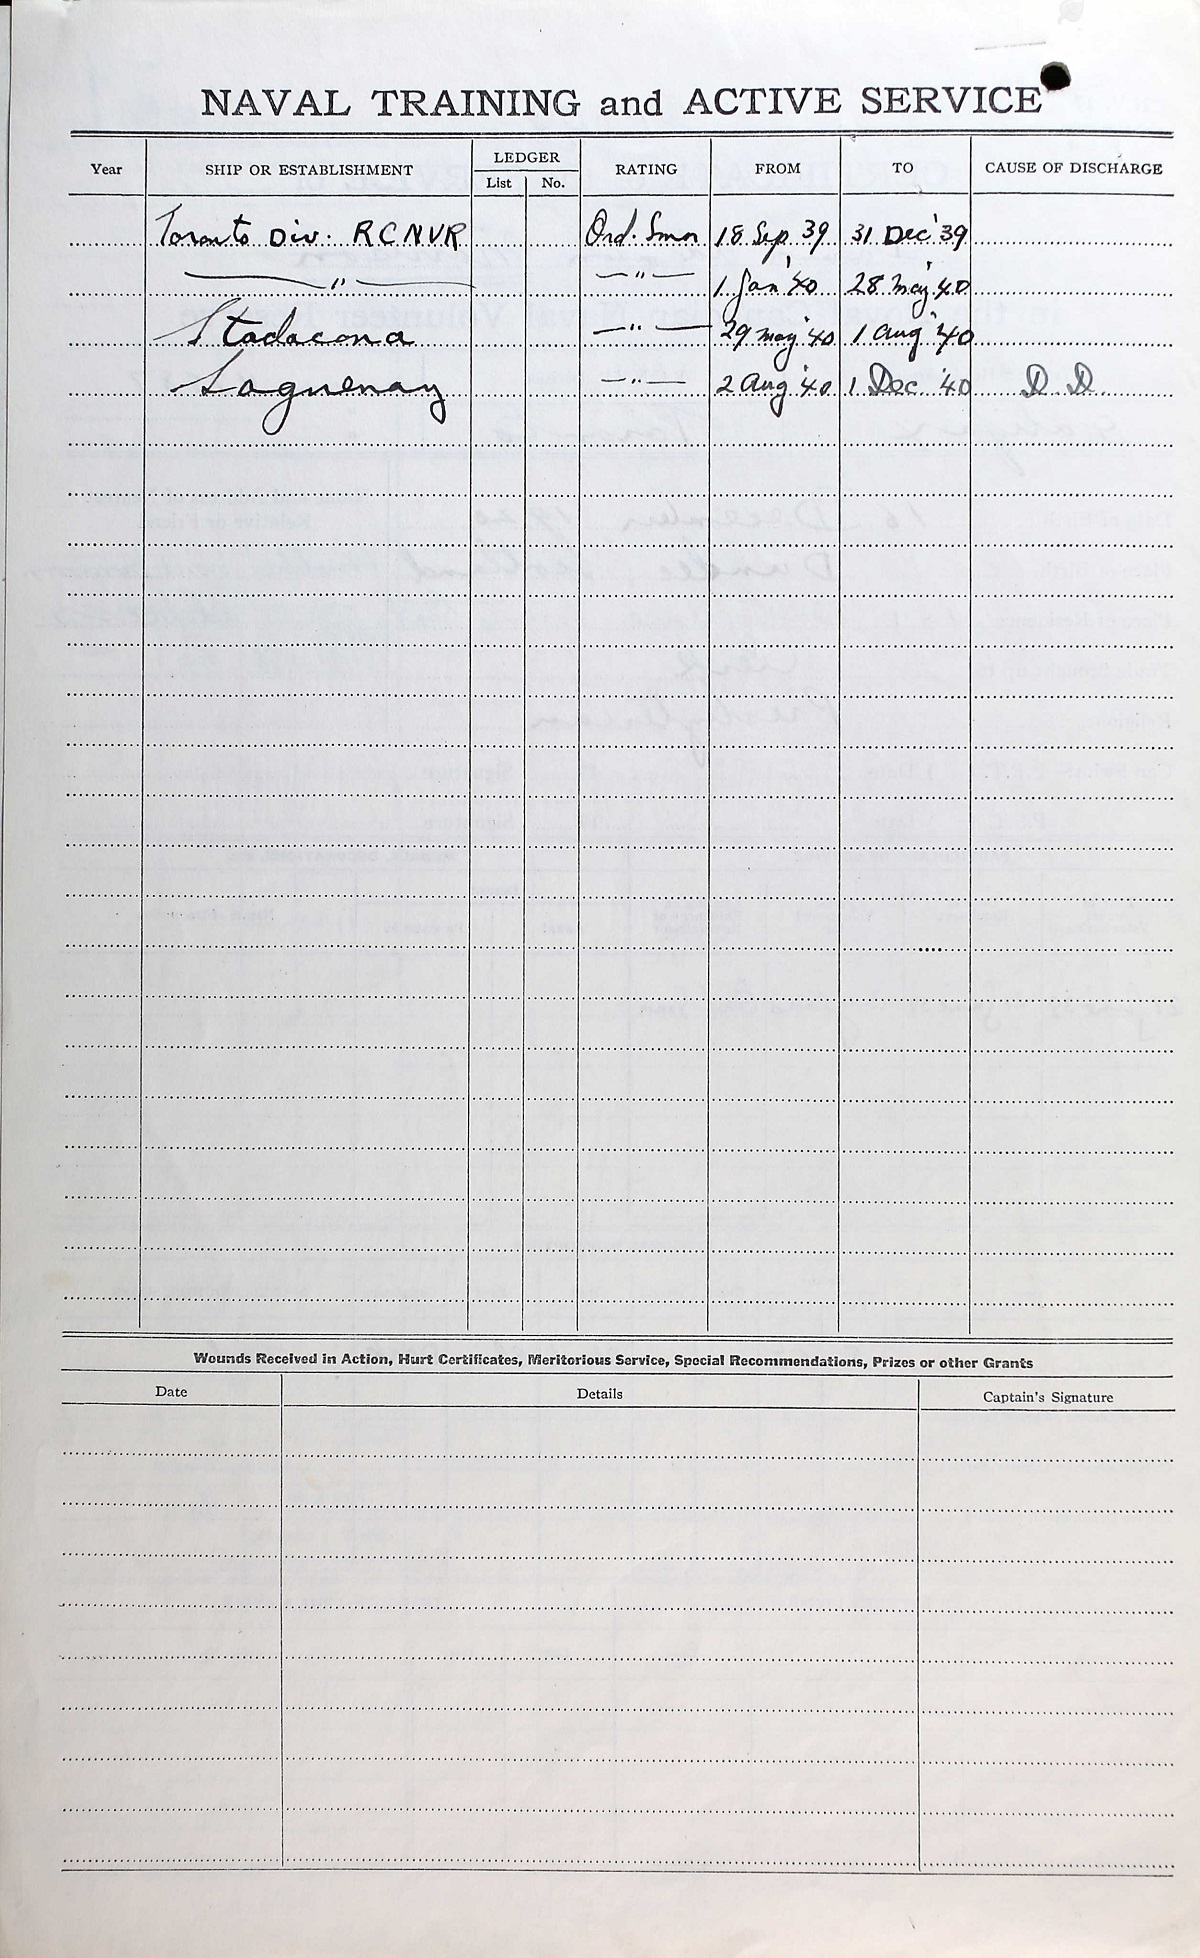 NAVAL TRAINING and ACTIVE SERVICE
Year SHIP OR ESTABLISHMENT LEDGER RATING FROM TO CAUSE OF DISCHARGE
List No.
Toronto Div. RCNVR Ord. Smn 18 Sep 39 31 Dec '39
—"— —"— 1 Jan '40 28 May '40
Stadacona —"— 29 May '40 1 Aug '40
Saguenay —"— 2 Aug '40 1 Dec. '40 D.D.
Wounds Received in Action, Hurt Certificates, Meritorious Service, Special Recommendations, Prizes or other Grants
Date Details Captain's Signature